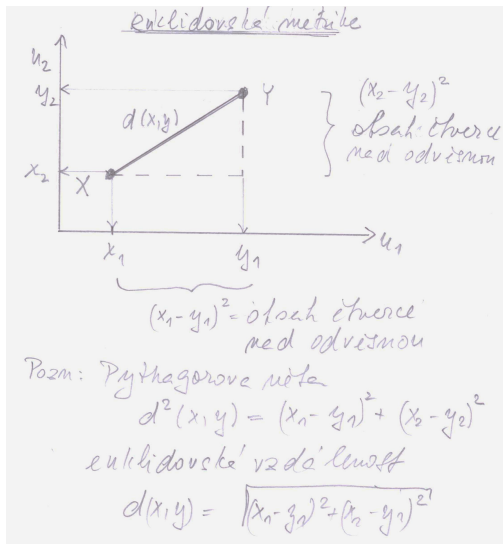 euklidovská metrika
u₂
y₂
Y
(x₂ - y₂)²
d(x,y)
obsah čtverce
nad odvěsnou
x₂
X
x₁
y₁
u₁
(x₁ - y₁)² = obsah čtverce
nad odvěsnou
Pozn: Pythagorova věta
d²(x,y) = (x₁ - y₁)² + (x₂ - y₂)²
euklidovská vzdálenost
d(x,y) =